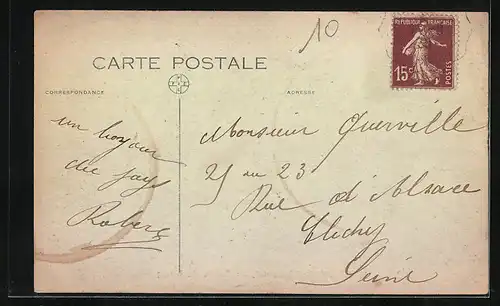 10
RÉPUBLIQUE FRANÇAISE
15c
POSTES
CARTE POSTALE
CORRESPONDANCE
ADRESSE
un bonjour
du pays
Robert
Monsieur Querville
21 ou 23
Rue d'Alsace
Clichy
Seine